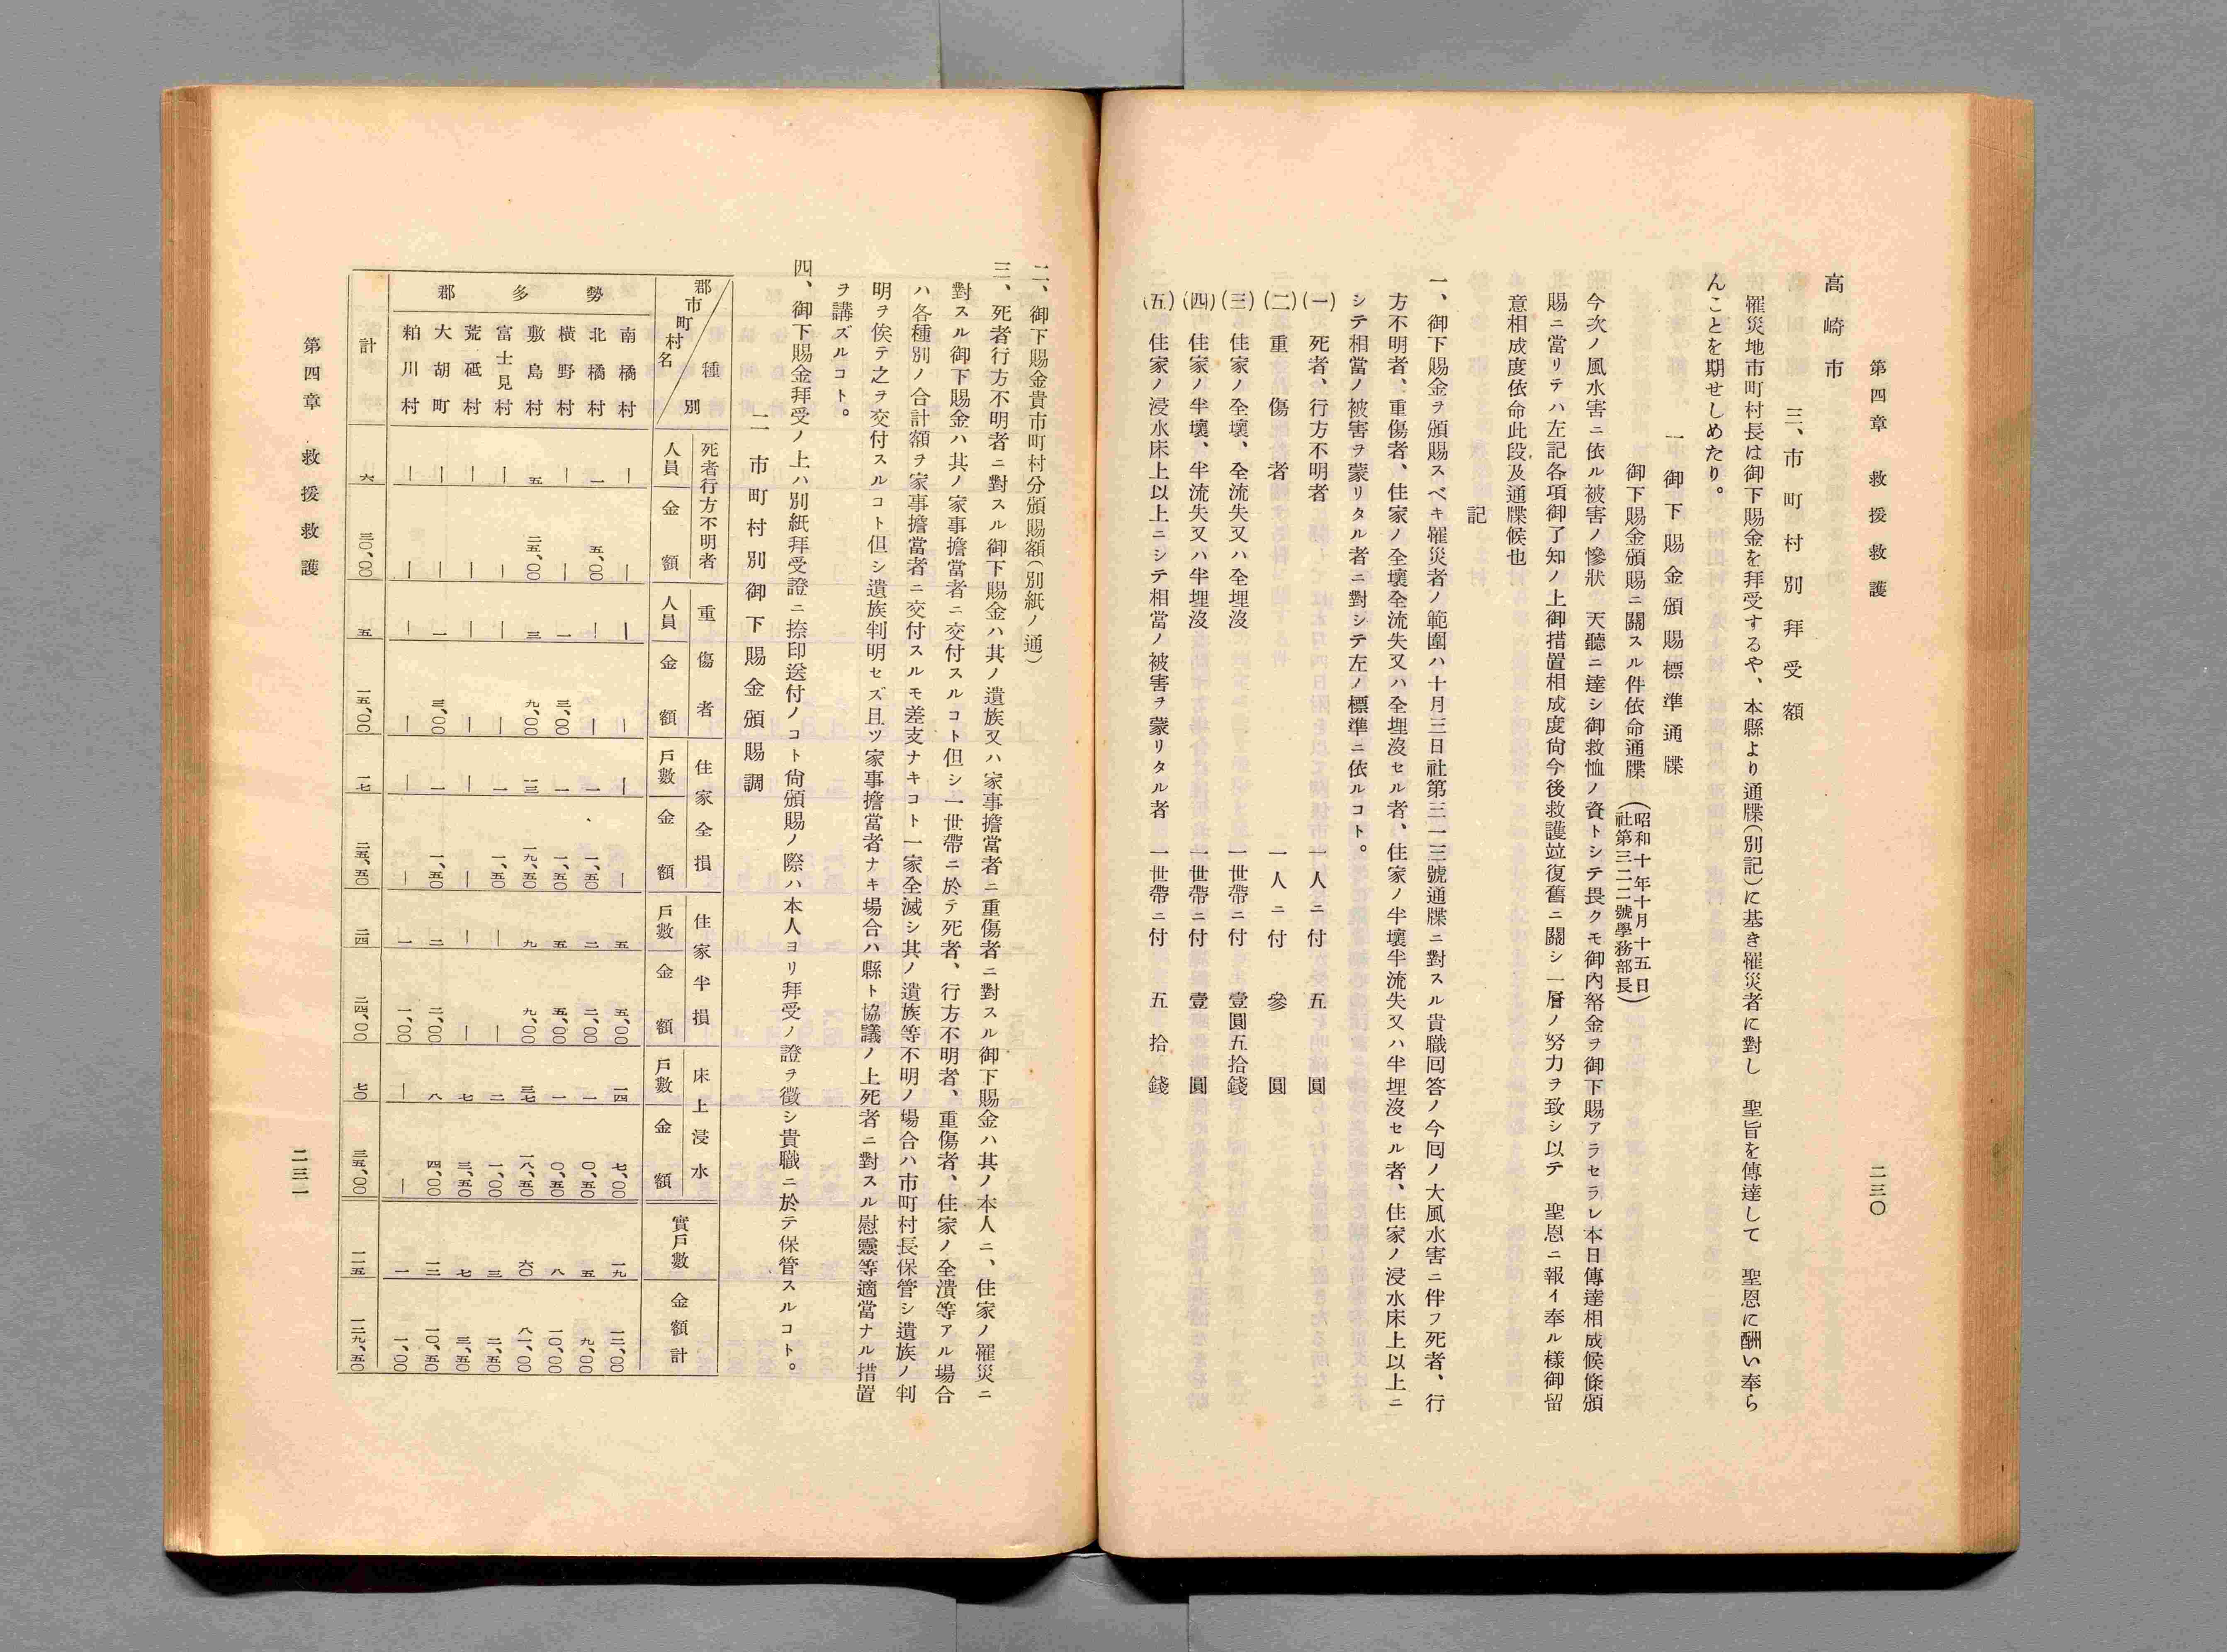 第四章　救援救護
二三〇
高崎市
三、市町村別拜受額
罹災地市町村長は御下賜金を拜受するや、本縣より通牒（別記）に基き罹災者に對し　聖旨を傳達して　聖恩に酬い奉ら
んことを期せしめたり。
一　御下賜金頒賜標準通牒
御下賜金頒賜ニ關スル件依命通牒
（昭和十年十月十五日
社第三二二號學務部長）
今次ノ風水害ニ依ル被害ノ慘狀　天聽ニ達シ御救恤ノ資トシテ畏クモ御內帑金ヲ御下賜アラセラレ本日傳達相成候條頒
賜ニ當リテハ左記各項御了知ノ上御措置相成度尙今後救護竝復舊ニ關シ一層ノ努力ヲ致シ以テ　聖恩ニ報イ奉ル樣御留
意相成度依命此段及通牒候也
記
一、御下賜金ヲ頒賜スベキ罹災者ノ範圍ハ十月三日社第三一三號通牒ニ對スル貴職回答ノ今回ノ大風水害ニ伴フ死者、行
方不明者、重傷者、住家ノ全壞全流失又ハ全埋沒セル者、住家ノ半壞半流失又ハ半埋沒セル者、住家ノ浸水床上以上ニ
シテ相當ノ被害ヲ蒙リタル者ニ對シテ左ノ標準ニ依ルコト。
（一）　死者、行方不明者　一人ニ付　五圓
（二）　重傷者　一人ニ付　參圓
（三）　住家ノ全壞、全流失又ハ全埋沒　一世帶ニ付　壹圓五拾錢
（四）　住家ノ半壞、半流失又ハ半埋沒　一世帶ニ付　壹圓
（五）　住家ノ浸水床上以上ニシテ相當ノ被害ヲ蒙リタル者　一世帶ニ付　五拾錢
二、御下賜金貴市町村分頒賜額（別紙ノ通）
三、死者行方不明者ニ對スル御下賜金ハ其ノ遺族又ハ家事擔當者ニ重傷者ニ對スル御下賜金ハ其ノ本人ニ、住家ノ罹災ニ
對スル御下賜金ハ其ノ家事擔當者ニ交付スルコト但シ一世帶ニ於テ死者、行方不明者、重傷者、住家ノ全潰等アル場合
ハ各種別ノ合計額ヲ家事擔當者ニ交付スルモ差支ナキコト一家全滅シ其ノ遺族等不明ノ場合ハ市町村長保管シ遺族ノ判
明ヲ俟テ之ヲ交付スルコト但シ遺族判明セズ且ツ家事擔當者ナキ場合ハ縣ト協議ノ上死者ニ對スル慰靈等適當ナル措置
ヲ講ズルコト。
四、御下賜金拜受ノ上ハ別紙拜受證ニ捺印送付ノコト尙頒賜ノ際ハ本人ヨリ拜受ノ證ヲ徵シ貴職ニ於テ保管スルコト。
二　市町村別御下賜金頒賜調
郡市町村名　種別　死者行方不明者　重傷者　住家全損　住家半損　床上浸水　實戶數　金額計
人員　金額　人員　金額　戶數　金額　戶數　金額　戶數　金額
勢多郡
南橘村　｜　｜　｜　｜　｜　｜　五　五、〇〇　一四　七、〇〇　一九　一二、〇〇
北橘村　一　五、〇〇　｜　｜　一　一、五〇　二　二、〇〇　一　〇、五〇　五　九、〇〇
橫野村　｜　｜　一　三、〇〇　一　一、五〇　五　五、〇〇　一　〇、五〇　八　一〇、〇〇
敷島村　五　二五、〇〇　三　九、〇〇　一三　一九、五〇　九　九、〇〇　三七　一八、五〇　六〇　八一、〇〇
富士見村　｜　｜　｜　｜　一　一、五〇　｜　｜　二　一、〇〇　三　二、五〇
荒砥村　｜　｜　｜　｜　｜　｜　｜　｜　七　三、五〇　七　三、五〇
大胡町　｜　｜　一　三、〇〇　一　一、五〇　二　二、〇〇　八　四、〇〇　一二　一〇、五〇
粕川村　｜　｜　｜　｜　｜　｜　一　一、〇〇　｜　｜　一　一、〇〇
計　六　三〇、〇〇　五　一五、〇〇　一七　二五、五〇　二四　二四、〇〇　七〇　三五、〇〇　一一五　一二九、五〇
第四章　救援救護
二三一